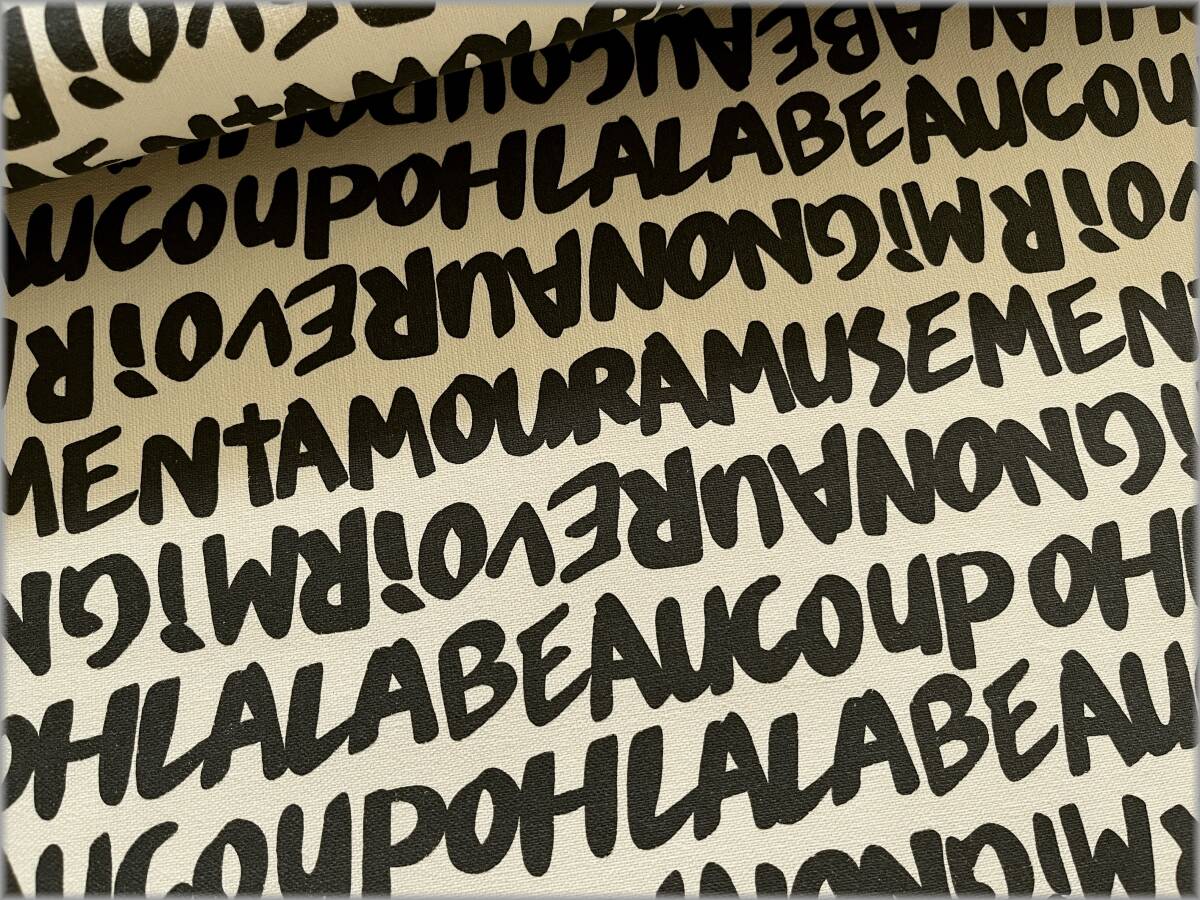 AUCOUPOHLALABEAUCOU
VOiRMiGNONAUREVOiR
MENTAMOURAMUSEMEN
iGNONAUREVOiRMiGN
OHLALABEAUCOUP OH
AUCOUPOHLALABEAU
RMiGNON